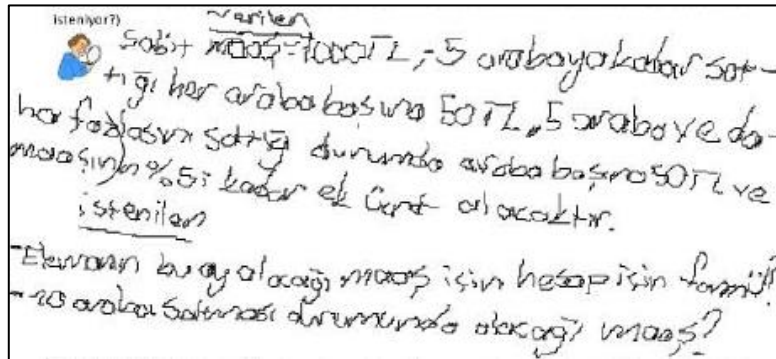 isteniyor?)
verilen
Sabit maaş = 1000TL, -5 arabaya kadar sat-
tığı her araba başına 50 TL, 5 araba ve da-
ha fazlasını sattığı durumda araba başına 50TL ve
maaşının %5'i kadar ek ücret alacaktır.
istenilen
-Elemanın bu ay alacağı maaş için hesap için formül?
-10 araba satması durumunda alacağı maaş?